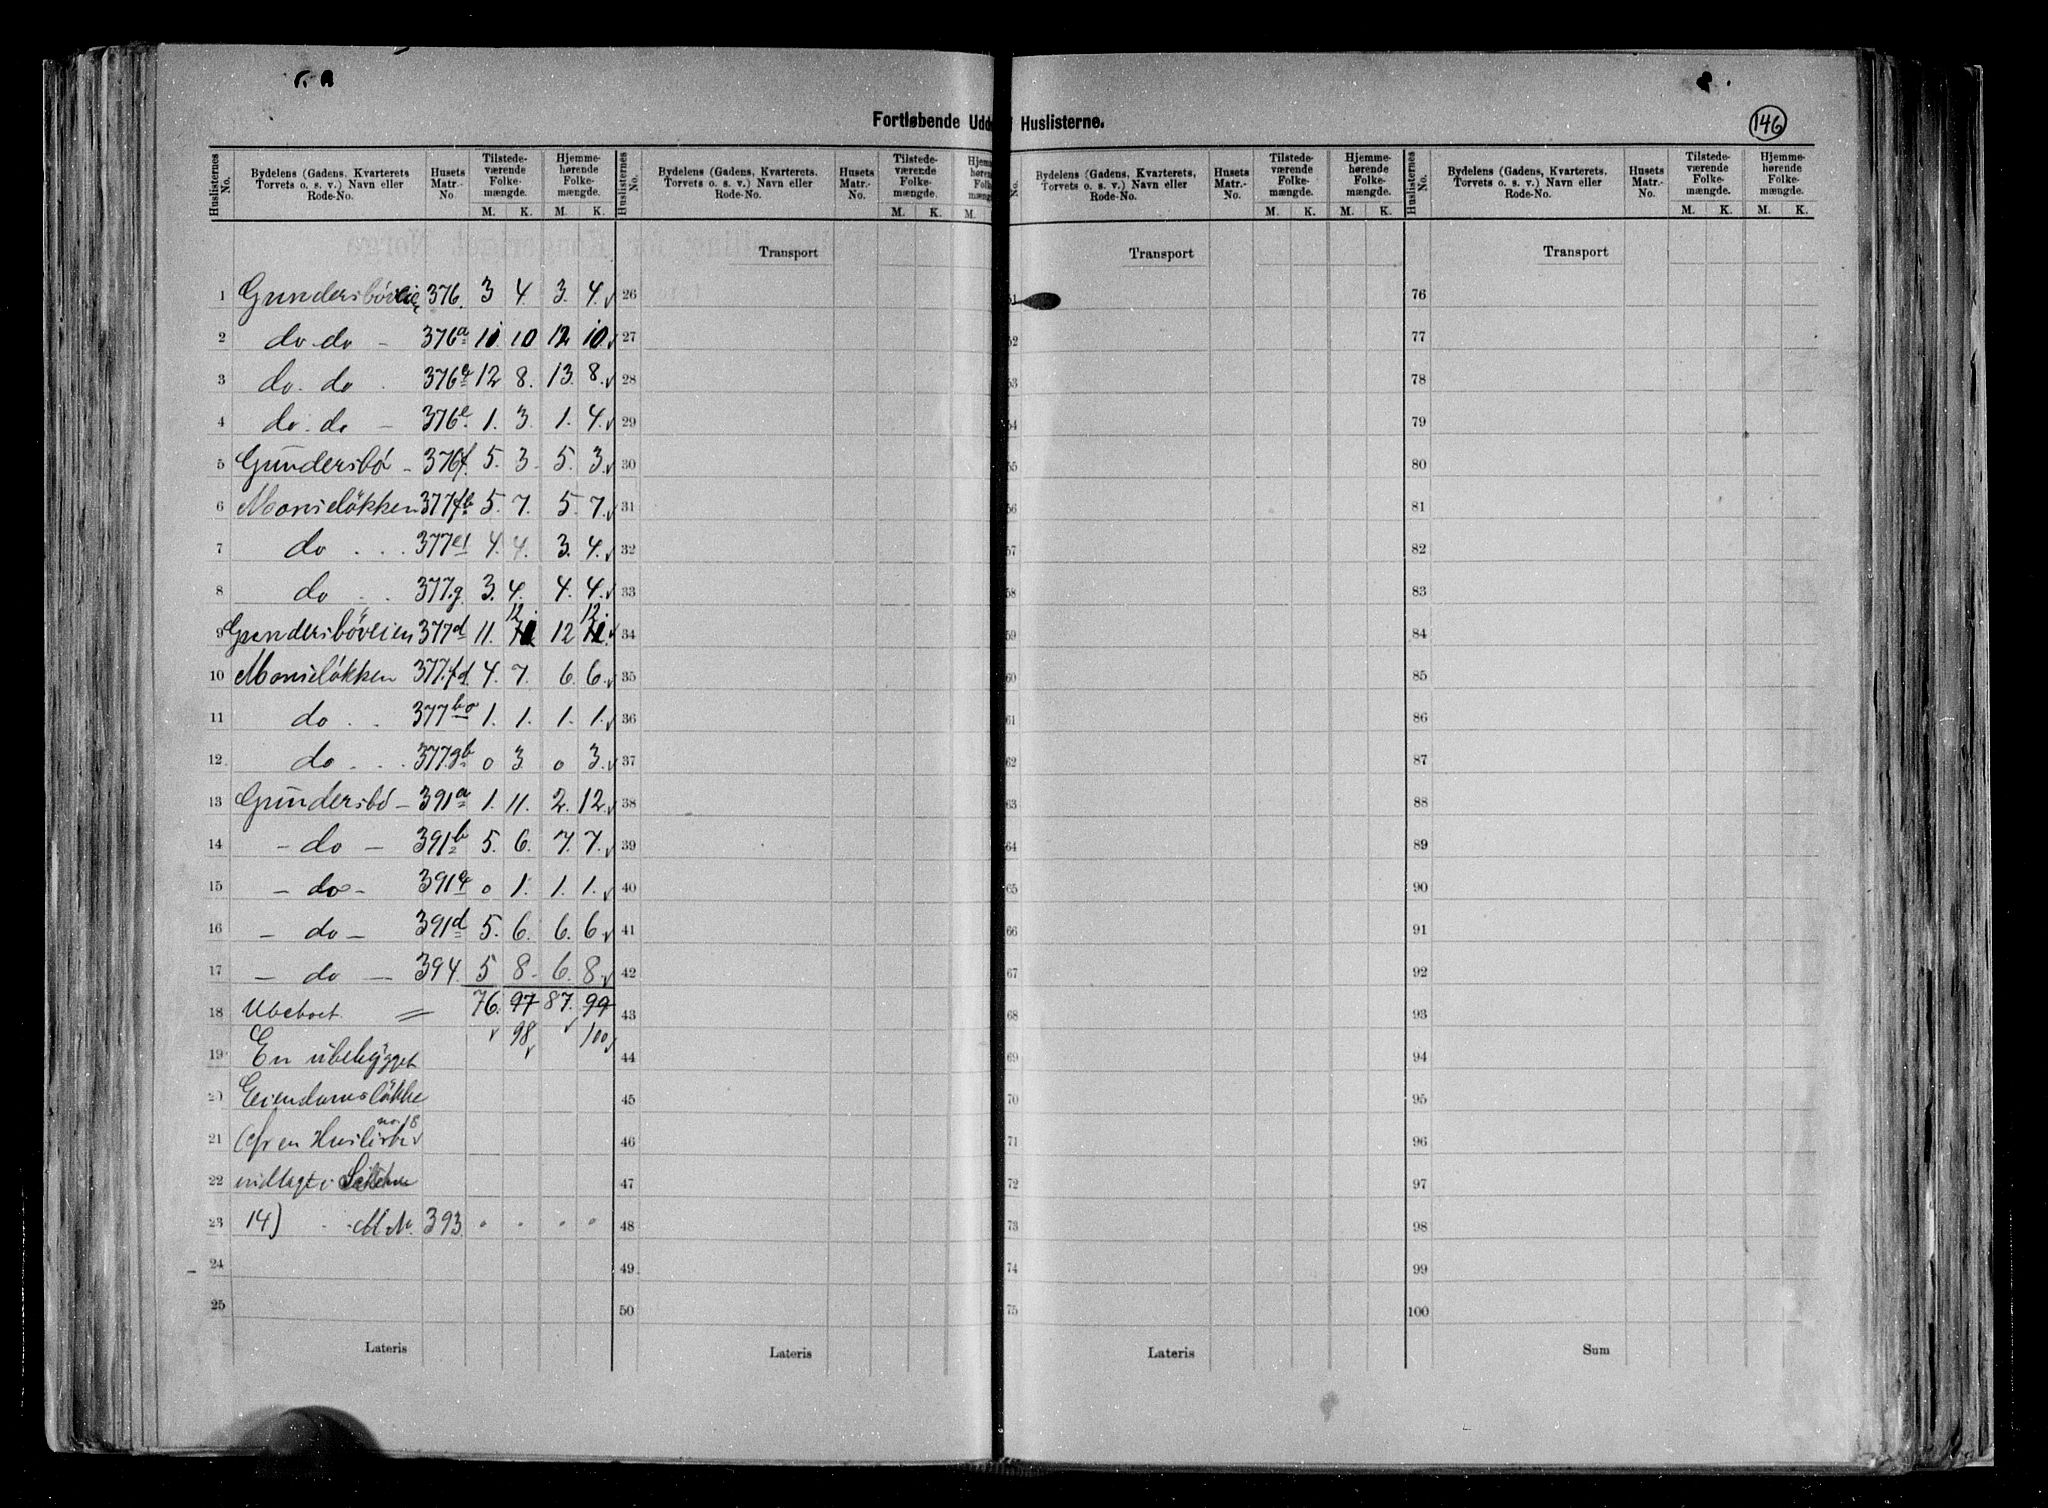 Fortløbende Udd
Huslisterne.
146
Huslisternes No. Bydelens (Gadens, Kvarterets, Torvets o. s. v.) Navn eller Rode-No. Husets Matr.-No. Tilstedeværende Folkemængde. M. K. Hjemmehørende Folkemængde. M. K.
Huslisternes No. Bydelens (Gadens, Kvarterets, Torvets o. s. v.) Navn eller Rode-No. Husets Matr.-No. Tilstedeværende Folkemængde. M. K. M.
No. Bydelens (Gadens, Kvarterets, Torvets o. s. v.) Navn eller Rode-No. Husets Matr.-No. Tilstedeværende Folkemængde. M. K. Hjemmehørende Folkemængde. M. K.
Huslisternes No. Bydelens (Gadens, Kvarterets, Torvets o. s. v.) Navn eller Rode-No. Husets Matr.-No. Tilstedeværende Folkemængde. M. K. Hjemmehørende Folkemængde. M. K.
Transport Transport Transport
1 Gundersbøveien 376. 3 4. 3. 4. 26 51 76
2 do. do - 376a 11. 10 12 10. 27 52 77
3 do. do . 376c 12 8. 13. 8. 28 53 78
4 do. do - 376e. 1. 3. 1. 4. 29 54 79
5 Gundersbø - 376f. 5. 3. 5. 3. 30 55 80
6 Monseløkken 377fb 5. 7. 5. 7. 31 56 81
7 do . . . 377e1 4. 4. 3. 4. 32 57 82
8 do . . 377.g. 3. 4. 4. 4. 33 58 83
12. 12.
9 Gundersbøveien 377d 11. 12 34 59 84
10 Monseløkken 377.fd. 4. 7. 6. 6. 35 60 85
11 do . . 377bo 1. 1. 1. 1. 36 61 86
12 do . . . 377gb 0 3. 0 3. 37 62 87
13 Gundersbø - 391a 1. 11. 2. 12. 38 63 88
14 - do - 391b 5. 6. 7. 7. 39 64 89
15 - do - 391c 0 1. 1. 1. 40 65 90
16 - do - 391d 5. 6. 6. 6. 41 66 91
17 - do - 394. 5 8. 6. 8. 42 67 92
18 Ubeboet = 76. 97 87. 99 43 68 93
98 100
19 En ubebygget 44 69 94
20 Eiendomsløkke 45 70 95
21 (cfr en Husliste no 18 46 71 96
22 indlagt i 47 72 97
23 14) . - M No. 393. " " " " 48 73 98
24 49 74 99
25 50 75 100
Lateris Lateris Lateris Sum